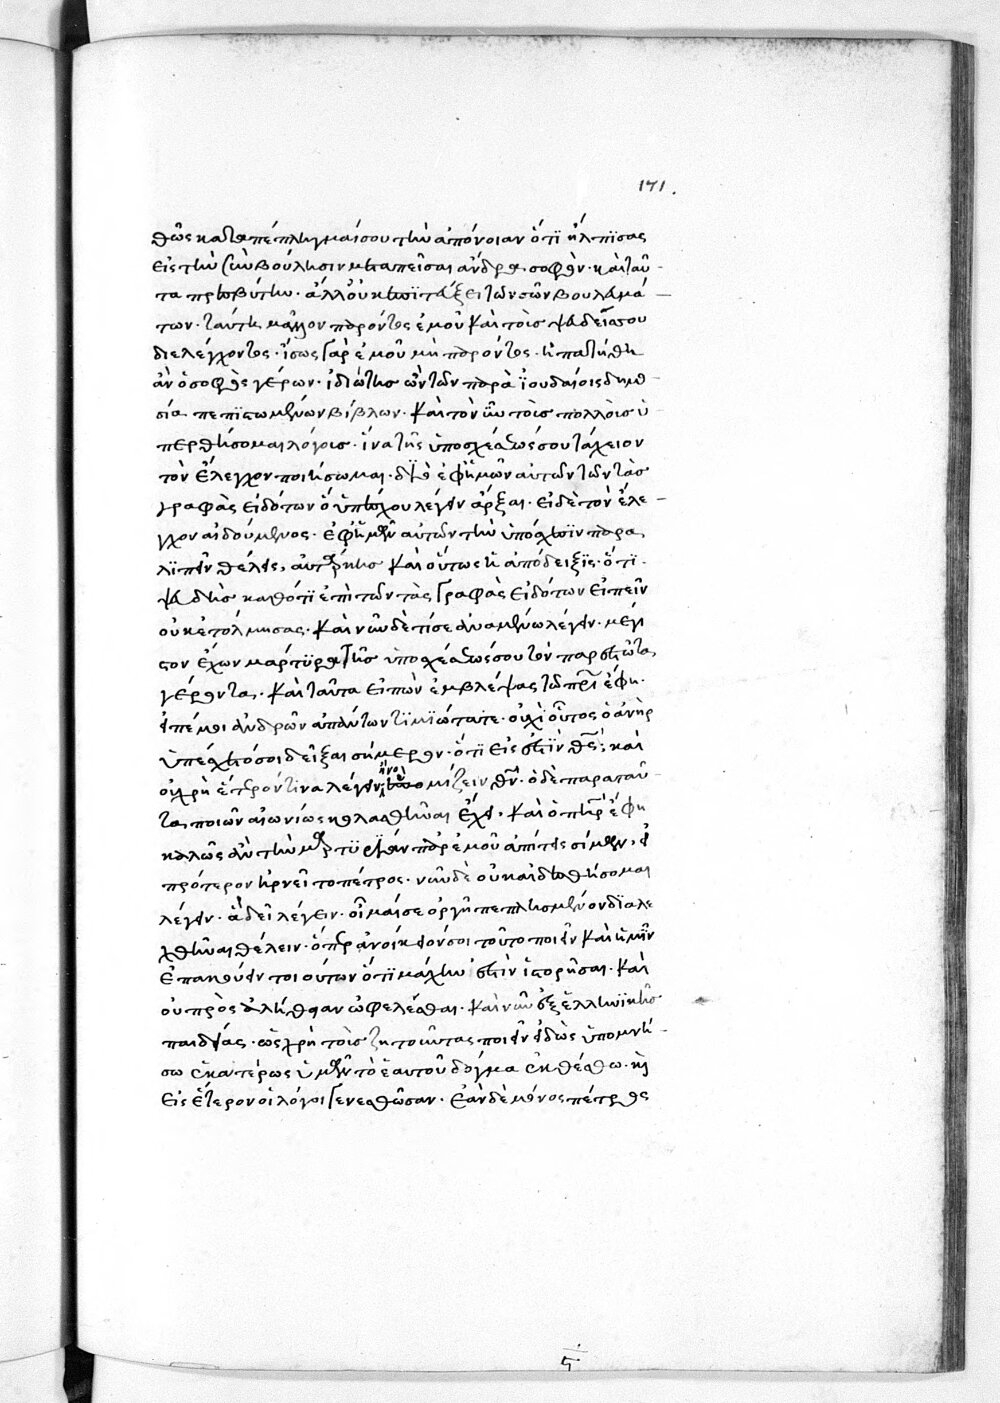 171.
θῶς καταπέπληγμαί σου τὴν ἀπόνοιαν ὅτϊ ἤλπϊσας
εἰς τὴν σὴν βούλησιν μεταπεῖσαι ἄνδρα σοφὸν· καὶ ταῦ-
τα πρεσβύτην· ἀλλ' οὐκ
των· ταύτῃ μᾶλλον παρόντος ἐμοῦ καὶ τοῖς ψευδεῖσί σου
διελέγχοντος· ἴσως γὰρ ἐμοῦ μὴ παρόντος· ἠπατήθη
ἂν ὁ σοφὸς γέρων· ἰδιώτης ὢν τῶν παρὰ ϊουδαίοις δημο-
σίᾳ πεπϊστωμένων βίβλων· καὶ τὸν νῦν τοὺς πολλοὺς ὑ-
περθήσομαι λόγους· ἵνα τῆς ὑποσχέσεώς σου τάχειον
τὸν ἔλεγχον ποιήσωμαι· διὸ ἐφ' ἡμῶν αὐτῶν τῶν τὰς
γραφὰς εἰδότων ὃ ὑπέσχου λέγειν ἄρξαι· εἰ δὲ τὸν ἔλε-
γχον αἰδούμενος· ἐφ' ἡμῶν αὐτῶν τὴν ὑπόσχεσϊν παρα
λϊπεῖν θέλεις, αὐτάρκης καὶ οὕτως ἡ ἀπόδειξϊς· ὅτϊ
ψεύδῃς καθότϊ ἐπὶ τῶν τὰς γραφὰς εἰδότων εἰπεῖν
οὐκ ἐτόλμησας· καὶ νῦν δὲ τί σε ἀναμένω λέγειν· μέγι
στον ἔχων μάρτϋρα τῆς ὑποσχέσεώς σου τὸν παρεστῶτα
γέροντα· καὶ ταῦτα εἰπὼν ἐμβλέψας τῷ πρὶ ἔφη·
εἰπέ μοι ἀνδρῶν ἁπάντων τϊμϊώτατε· οὐχὶ οὗτος ὁ ἀνὴρ
ὑπέσχετό σοι δεῖξαι σήμερον· ὅτϊ εἷς ἐστϊν θς· καὶ
οὐ χρὴ ἕτερόν τινα λέγειν ἢ νομίζειν θν· ὁ δὲ παρὰ ταῦ-
τα ποιῶν αἰωνίως κολασθῆναι ἔχει· καὶ ὁ πὴρ ἔφη
καλῶς ἂν τὴν μαρτϋρίαν παρ' ἐμοῦ ἀπῄτεις σίμων, εἰ
πρότερον ἠρνεῖτο πέτρος· νῦν δὲ οὐκ αἰδεσθήσομαι
λέγειν· ἃ δεῖ λέγειν· οἶμαί σε ὀργῇ πεπλησμένον διαλε
χθῆναι θέλειν· ὅπερ ἀνοίκειόν σοι τοῦτο ποιεῖν καὶ ἡμῖν
ἐπακούειν τοιούτων ὅτϊ μάχην ἐστὶν ἱστορῆσαι· καὶ
οὐ πρὸς ἀλήθειαν ὠφελέσθαι· καὶ νῦν ἐξ ἑλληνϊκῆς
παιδείας· ὡς χρὴ τοὺς ζητοῦντας ποιεῖν εἰδὼς ὑπομνή-
σω ἑκατέρως ὑμῶν τὸ ἑαυτοῦ δόγμα ἐκθέσθω· κὴ
εἰς ἕτερον οἱ λόγοι γενέσθωσαν· ἐὰν δὲ μόνος πέτρος